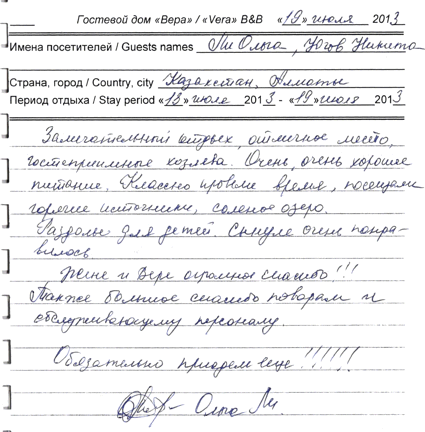 Гостевой дом «Вера» / «Vera» B&B «19» июля 2013
Имена посетителей / Guests names Ли Ольга, Югов Никита
Страна, город / Country, city Казахстан, Алматы
Период отдыха / Stay period «13» июля 2013 - «19» июля 2013
Замечательный отдых, отличное место,
гостеприимные хозяева. Очень, очень хорошее
питание. Классно провели время, посещали
горячие источники, соленое озеро.
Раздолье для детей. Сынуле очень понра-
вилось
Жене и Вере огромное спасибо!!!
Также большое спасибо поварам и
обслуживающему персоналу.
Обязательно приедем еще!!!!!!
Ольга Ли.